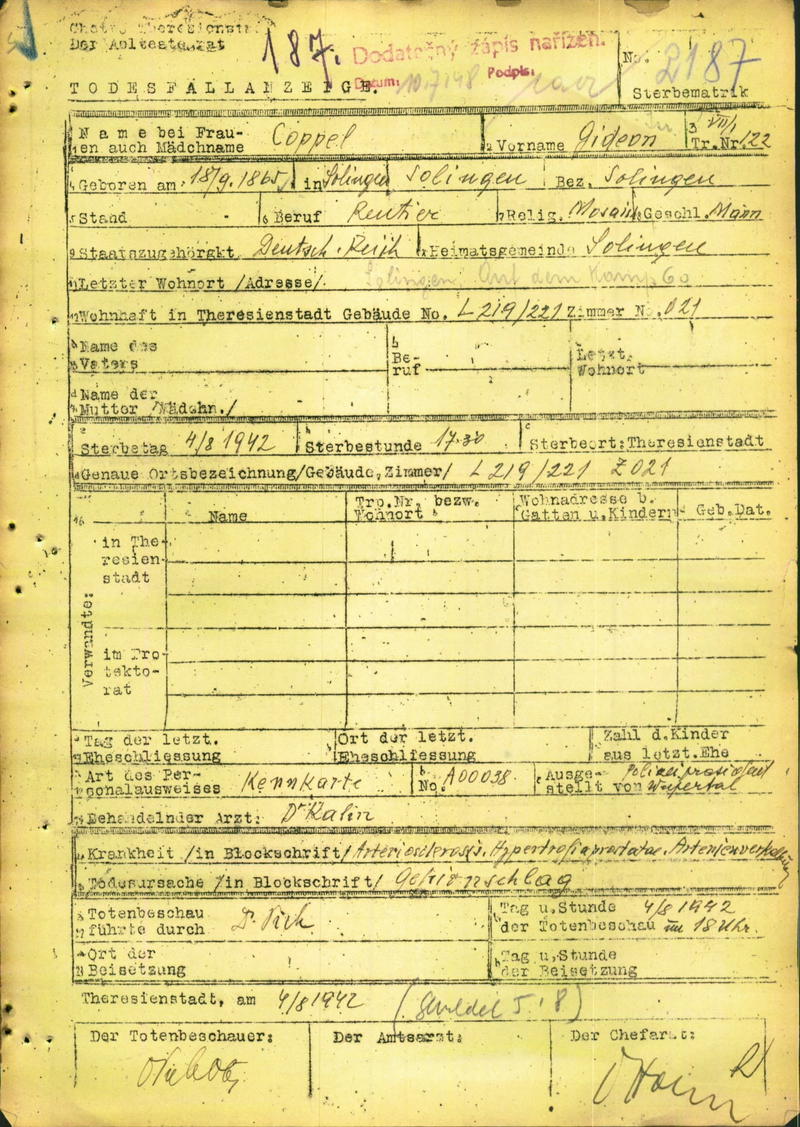 Ghetto Theresienstadt
Der Aeltestenrat
187. Dodatečný zápis nařízen.
Datum: 10.7.48 Podpis:
No. 2187
Sterbematrik
TODESFALLANZEIGE.
Name bei Frauen auch Mädchname Cöppel Vorname Gideon Tr.Nr. VII/1 122
Geboren am: 18/9.1865 in Solingen Solingen Bez. Solingen
Stand Beruf Rentier Relig. Mosaisch Geschl. Mann
Staatszugehörgkt Deutsch. Reich Heimatsgemeinde Solingen
Letzter Wohnort /Adresse/ Solingen, Auf dem Kamp 60
Wohnhaft in Theresienstadt Gebäude No. L 219/221 Zimmer No. 021
Name des Vaters Beruf Letzt. Wohnort
Name der Mutter /Mädchn./
Sterbetag 4/8 1942 Sterbestunde 17.30 Sterbeort: Theresienstadt
Genaue Ortsbezeichnung/Gebäude, Zimmer/ L 219/221 Z 021
Name Trp.Nr. bezw. Wohnort Wohnadresse b. Gatten u. Kindern Geb.Dat.
Verwandte:
in Theresienstadt
im Protektorat
Tag der letzt. Eheschliessung Ort der letzt. Eheschliessung Zahl d. Kinder aus letzt. Ehe
Art des Personalausweises Kennkarte No. A00038. Ausgestellt von Polizeipräsident Wupertal
Behandelnder Arzt: Dr Kalin
Krankheit /in Blockschrift/ Arteriosklerosis. Hypertrofia prostatae. Arterienverkalkung
Todesursache /in Blockschrift/ Gehirnschlag
Totenbeschau führte durch Tag u. Stunde der Totenbeschau 4/8 1942 um 18 Uhr.
Ort der Beisetzung Tag u. Stunde der Beisetzung
Theresienstadt, am 4/8 1942
Der Totenbeschauer: Der Amtsarzt: Der Chefarzt: